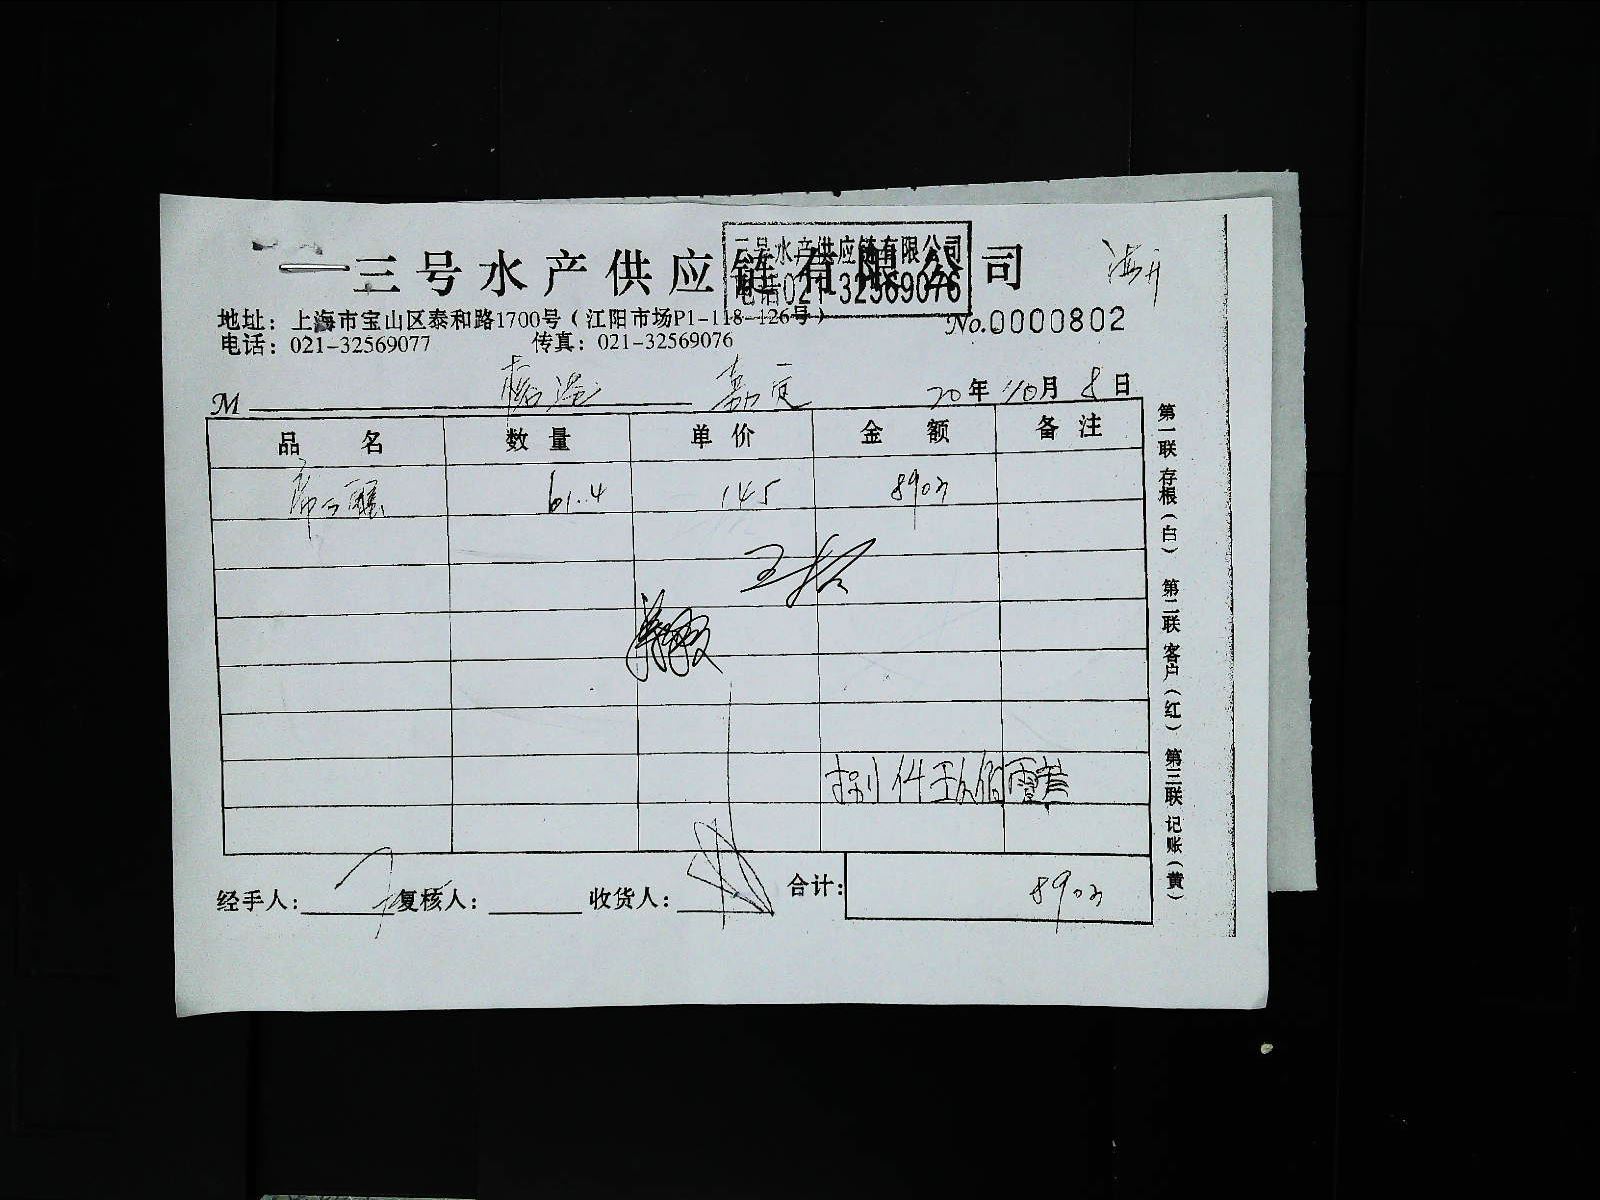 三号水产供应链有限公司
三号水产供应链有限公司
电话021-32569076
地址：上海市宝山区泰和路1700号（江阳市场P1-118-126号）
No.0000802
电话：021-32569077 传真：021-32569076
M 嘉定 20年10月8日
品名 数量 单价 金额 备注
61.4 145 8903
捌仟玖佰零叁
经手人： 复核人： 收货人： 合计： 8903
第一联 存根（白） 第二联 客户（红） 第三联 记账（黄）